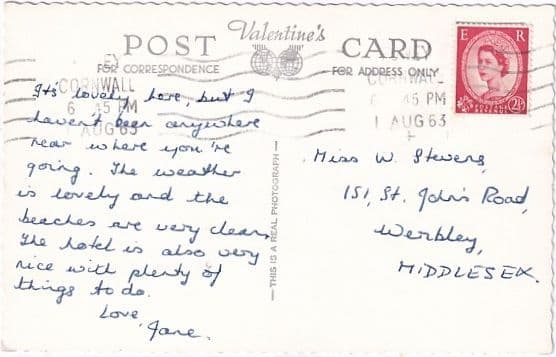 POST Valentine's CARD
FOR CORRESPONDENCE
FOR ADDRESS ONLY
E R
2½
CORNWALL
6 45 PM
1 AUG 63
CORNWALL
6 45 PM
1 AUG 63
Its lovely here, but I
haven't been anywhere
near where you're
going. The weather
is lovely and the
beaches are very clean,
The hotel is also very
nice with plenty of
things to do.
Love,
Jane.
— THIS IS A REAL PHOTOGRAPH —
Miss W. Stevens,
151, St. John's Road,
Wembley,
MIDDLESEX.